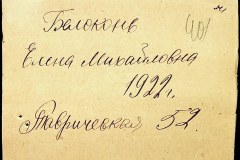 Белоконь
Елена Михайловна
1922 г.
Таврическая 52.